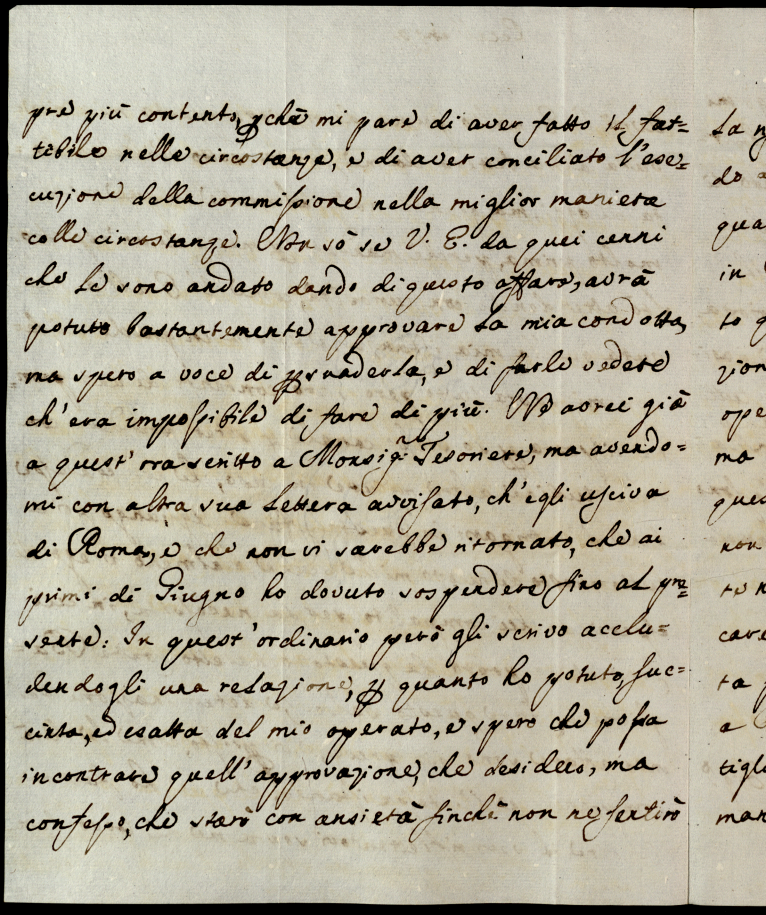 pre più contento, pchè mi pare di aver fatto il fat=
tibile nelle circostanze, e di aver conciliato l'ese=
cuzione della commissione nella miglior maniera
colle circostanze. Non sò se V. E. da quei cenni
che le sono andato dando di questo affare, avrà
potuto bastantemente approvare la mia condotta,
ma spero a voce di psuaderla, e di farle vedere
ch'era impossibile di fare di più. Ne avrei già
a quest'ora scritto a Monsigr. Tesoriere, ma avendo=
mi con altra sua lettera avvisato, ch'egli usciva
di Roma, e che non vi sarebbe ritornato, che ai
primi di Giugno ho dovuto sospendere fino al pre=
sente: In quest'ordinario però gli scrivo acclu=
dendogli una relazione, p quanto ho potuto, suc=
cinta, ed esatta del mio operato, e spero che possa
incontrare quell'approvazione, che desidero, ma
confesso, che starò con ansietà finchè non ne sentirò
la
do
qua
in
to
zion
ope
ma
que
non
to
care
ta
a
tigl
man